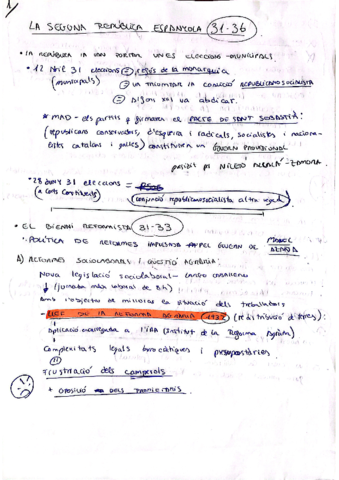 1
LA SEGONA REPÚBLICA ESPANYOLA 31-36
• LA REPÚBLICA VA UNES ELECCIONS MUNICIPALS.
• 12 Abril 31 eleccions = crisis de la monarquia
(municipals) = va triomfar la coalició republicanosocialista
= Alfons XIII va abdicar.
* MAD - els partits q formaren el PACTE DE SANT SEBASTIÀ:
(republicans conservadors, d'esquerra i radicals, socialistes i naciona-
listes catalans i gallecs) constituïren un GOVERN PROVISIONAL
presidit per NICETO ALCALÁ-ZAMORA.
• 28 Juny 31 eleccions = PSOE
(a Corts Constituents) (conjunció republicanosocialista altra vegada)
• EL BIENNI REFORMISTA 31-33
• POLÍTICA DE REFORMES IMPULSADA PEL GOVERN DE MANUEL
AZAÑA
A) REFORMES SOCIOLABORALS I QÜESTIÓ AGRÀRIA:
Nova legislació sociolaboral - Largo Caballero
↓ (jornada màx laboral de 8h)
Amb l'objectiu de millorar la situació dels treballadors
- LLEI DE LA REFORMA AGRÀRIA 1932 (redistribució d terres):
Aplicació encarregada a l'IRA (Institut de la Reforma Agrària)
Complexitats legals burocràtiques i pressupostàries
Frustració dels camperols
+ oposició DELS PROPIETARIS